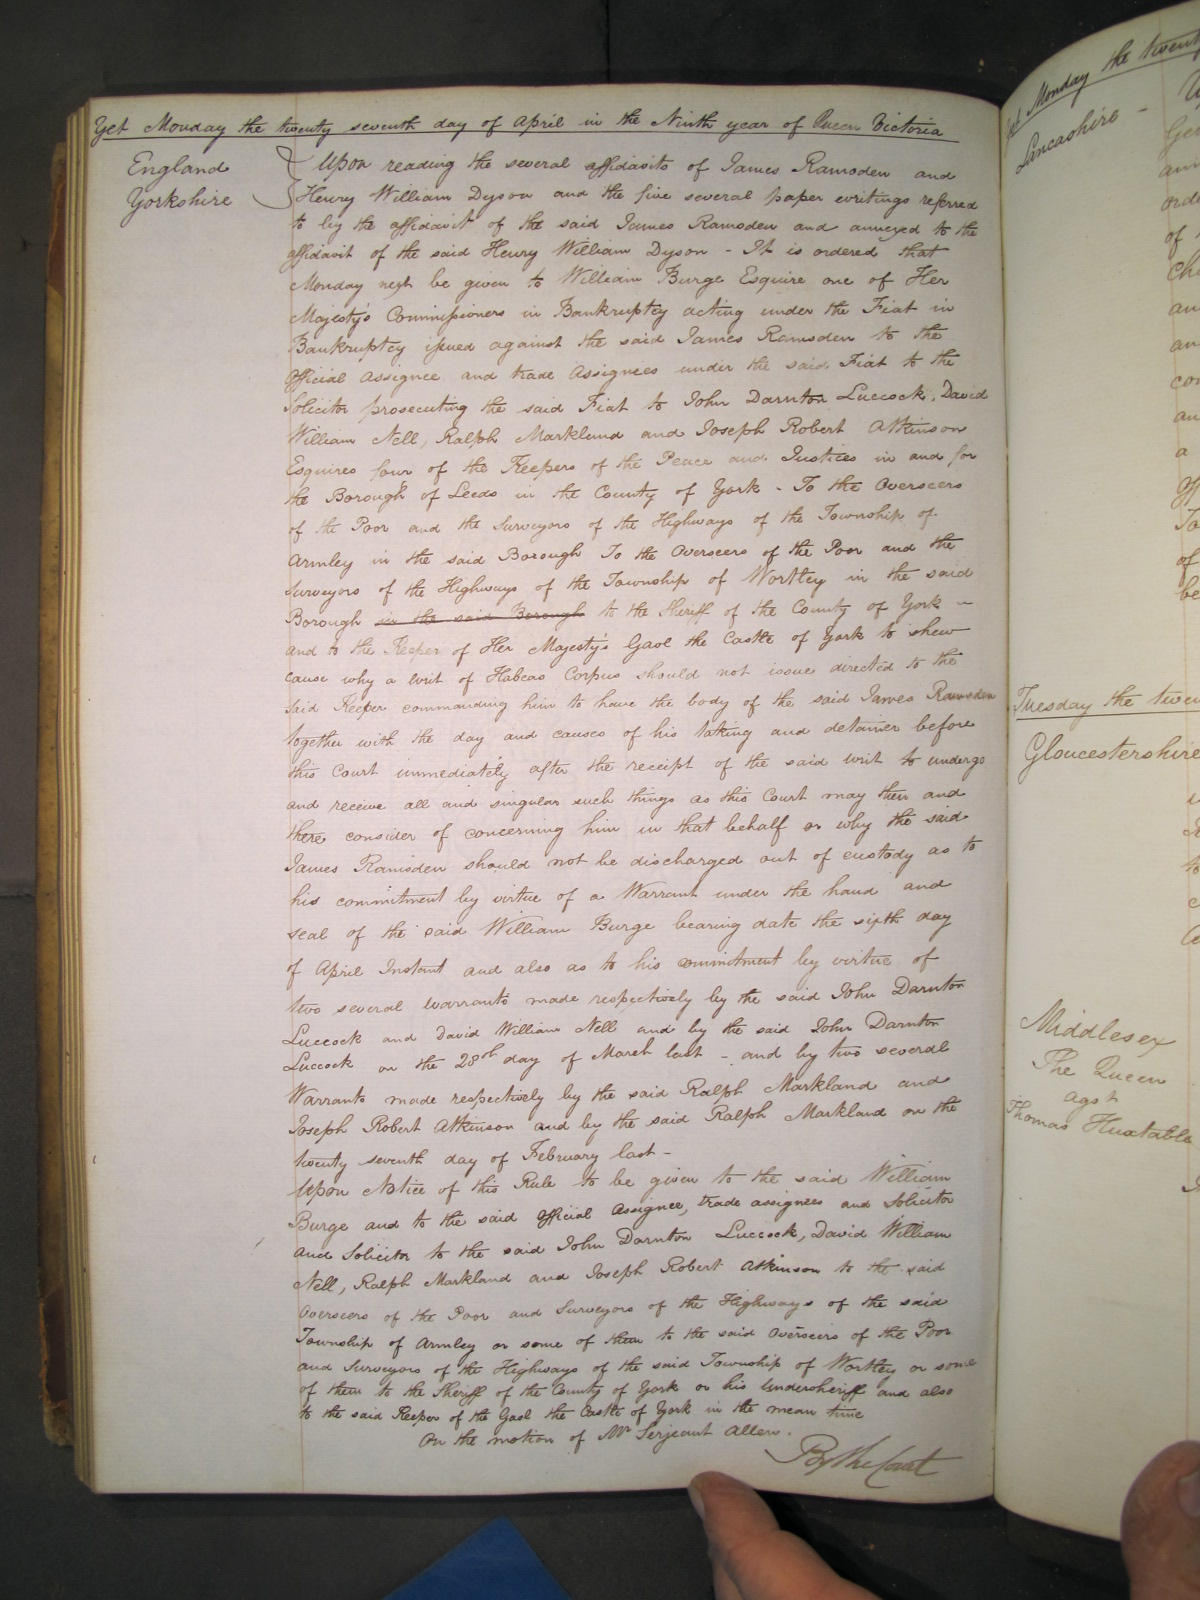 Yet Monday the twenty seventh day of April in the Ninth year of Queen Victoria
England
Yorkshire
Upon reading the several affidavits of James Ramsden and
Henry William Dyson and the five several paper writings referred
to by the affidavit of the said James Ramsden and annexed to the
affidavit of the said Henry William Dyson - It is ordered that
Monday next be given to William Burge Esquire one of Her
Majesty's Commissioners in Bankruptcy acting under the Fiat in
Bankruptcy issued against the said James Ramsden to the
Official Assignee and trade Assignees under the said Fiat to the
Solicitor prosecuting the said Fiat to John Darnton Luccock, David
William Nell, Ralph Markland and Joseph Robert Atkinson
Esquires four of the Keepers of the Peace and Justices in and for
the Borough of Leeds in the County of York - To the Overseers
of the Poor and the Surveyors of the Highways of the Township of
Armley in the said Borough To the Overseers of the Poor and the
Surveyors of the Highways of the Township of Wortley in the said
Borough in the said Borough to the Sheriff of the County of York -
and to the Keeper of Her Majesty's Gaol the Castle of York to shew
cause why a writ of Habeas Corpus should not issue directed to the
said Keeper commanding him to have the body of the said James Ramsden
together with the day and causes of his taking and detainer before
this Court immediately after the receipt of the said writ to undergo
and receive all and singular such things as this Court may then and
there consider of concerning him in that behalf or why the said
James Ramsden should not be discharged out of custody as to
his commitment by virtue of a Warrant under the hand and
seal of the said William Burge bearing date the sixth day
of April Instant and also as to his commitment by virtue of
two several warrants made respectively by the said John Darnton
Luccock and David William Nell and by the said John Darnton
Luccock on the 28th day of March last - and by two several
Warrants made respectively by the said Ralph Markland and
Joseph Robert Atkinson and by the said Ralph Markland on the
twenty seventh day of February last -
Upon Notice of this Rule to be given to the said William
Burge and to the said Official Assignee, trade assignees and Solicitor
and Solicitor to the said John Darnton Luccock, David William
Nell, Ralph Markland and Joseph Robert Atkinson to the said
Overseers of the Poor and Surveyors of the Highways of the said
Township of Armley or some of them to the said Overseers of the Poor
and Surveyors of the Highways of the said Township of Wortley or some
of them to the Sheriff of the County of York or his Undersheriff and also
to the said Keeper of the Gaol the Castle of York in the mean time
On the motion of Mr Serjeant Allen.
By the Court
Yet Monday the twenty
Lancashire -
of
a
of
be
Tuesday the
Gloucestershire
Middlesex
The Queen
agst
Thomas Huxtable